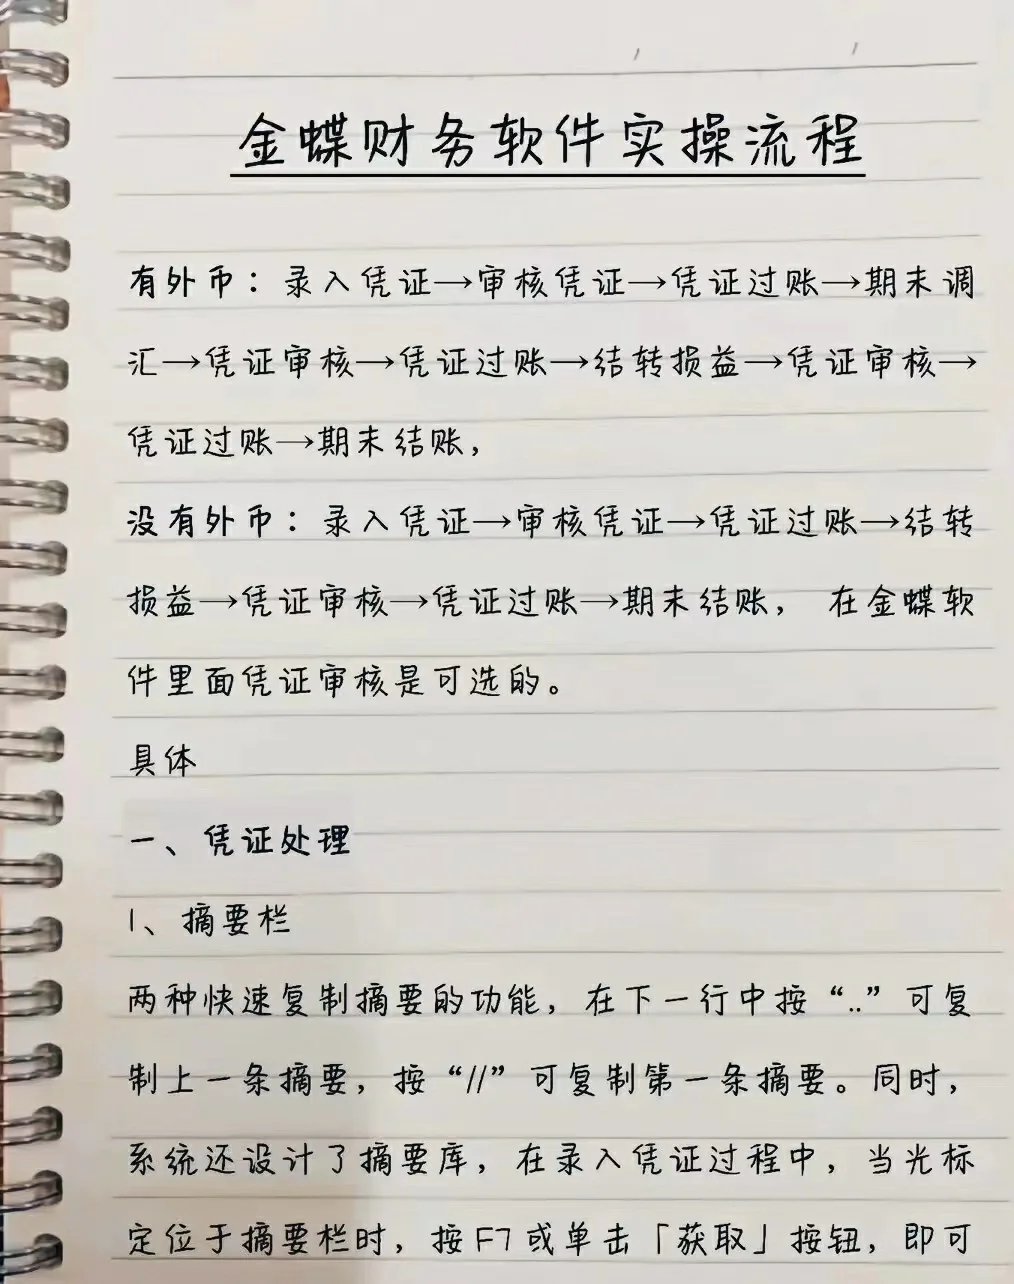 金蝶财务软件实操流程
有外币：录入凭证→审核凭证→凭证过账→期末调
汇→凭证审核→凭证过账→结转损益→凭证审核→
凭证过账→期末结账，
没有外币：录入凭证→审核凭证→凭证过账→结转
损益→凭证审核→凭证过账→期末结账， 在金蝶软
件里面凭证审核是可选的。
具体
一、凭证处理
1、摘要栏
两种快速复制摘要的功能，在下一行中按“..”可复
制上一条摘要，按“//”可复制第一条摘要。同时，
系统还设计了摘要库，在录入凭证过程中，当光标
定位于摘要栏时，按F7或单击「获取」按钮，即可